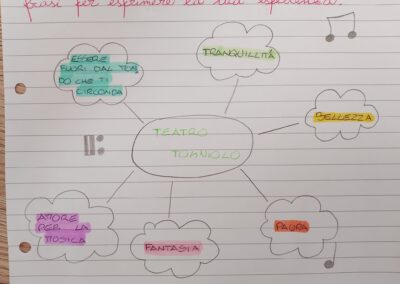 frasi per esprimere la sua esperienza.
ESSERE
FUORI DAL MON
DO CHE TI
CIRCONDA
TRANQUILLITÀ
BELLEZZA
TEATRO
TONIOLO
AMORE
PER LA
MUSICA
FANTASIA
PAURA